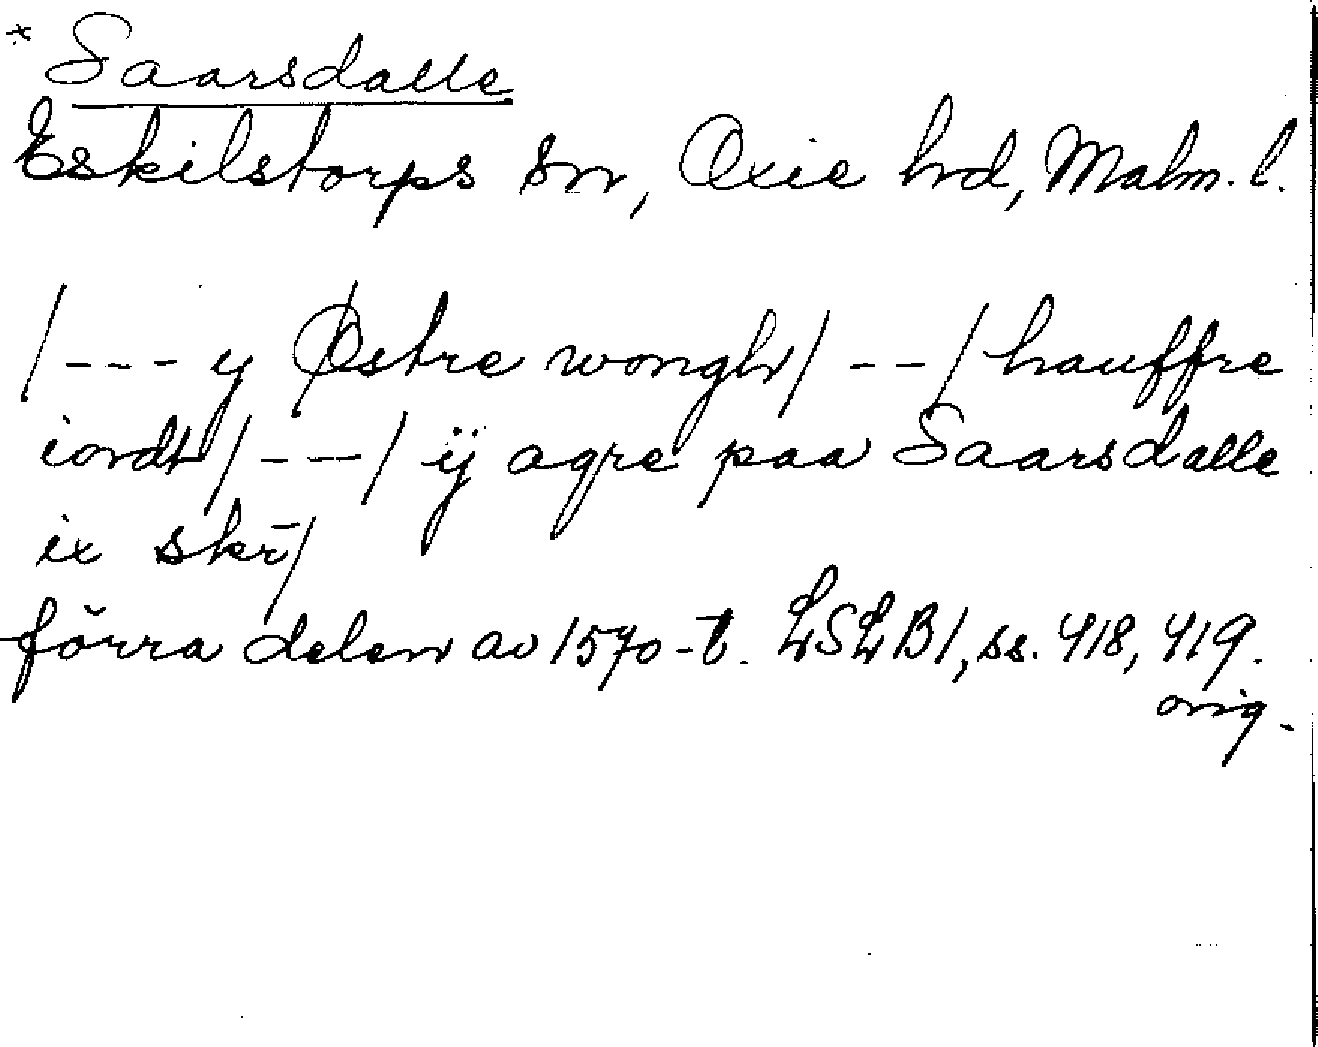 * Saarsdalle
Eskilstorps sn, Oxie hd, Malm. l.
/--- y Østre wongh/ --/ hauffre
iordt/---/ ij agre paa Saarsdalle
ix skr̄/
förra delen av 1570-t. LSLB1, ss. 418, 419.
orig.